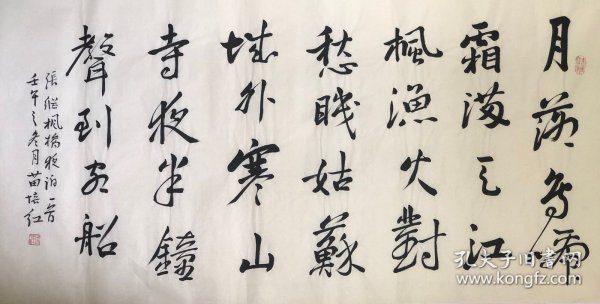 月落烏啼
霜滿天江
楓漁火對
愁眠姑蘇
城外寒山
寺夜半鐘
聲到客船
張繼楓橋夜泊一首
壬午之冬月苗培红
孔夫子旧书网
www.kongfz.com